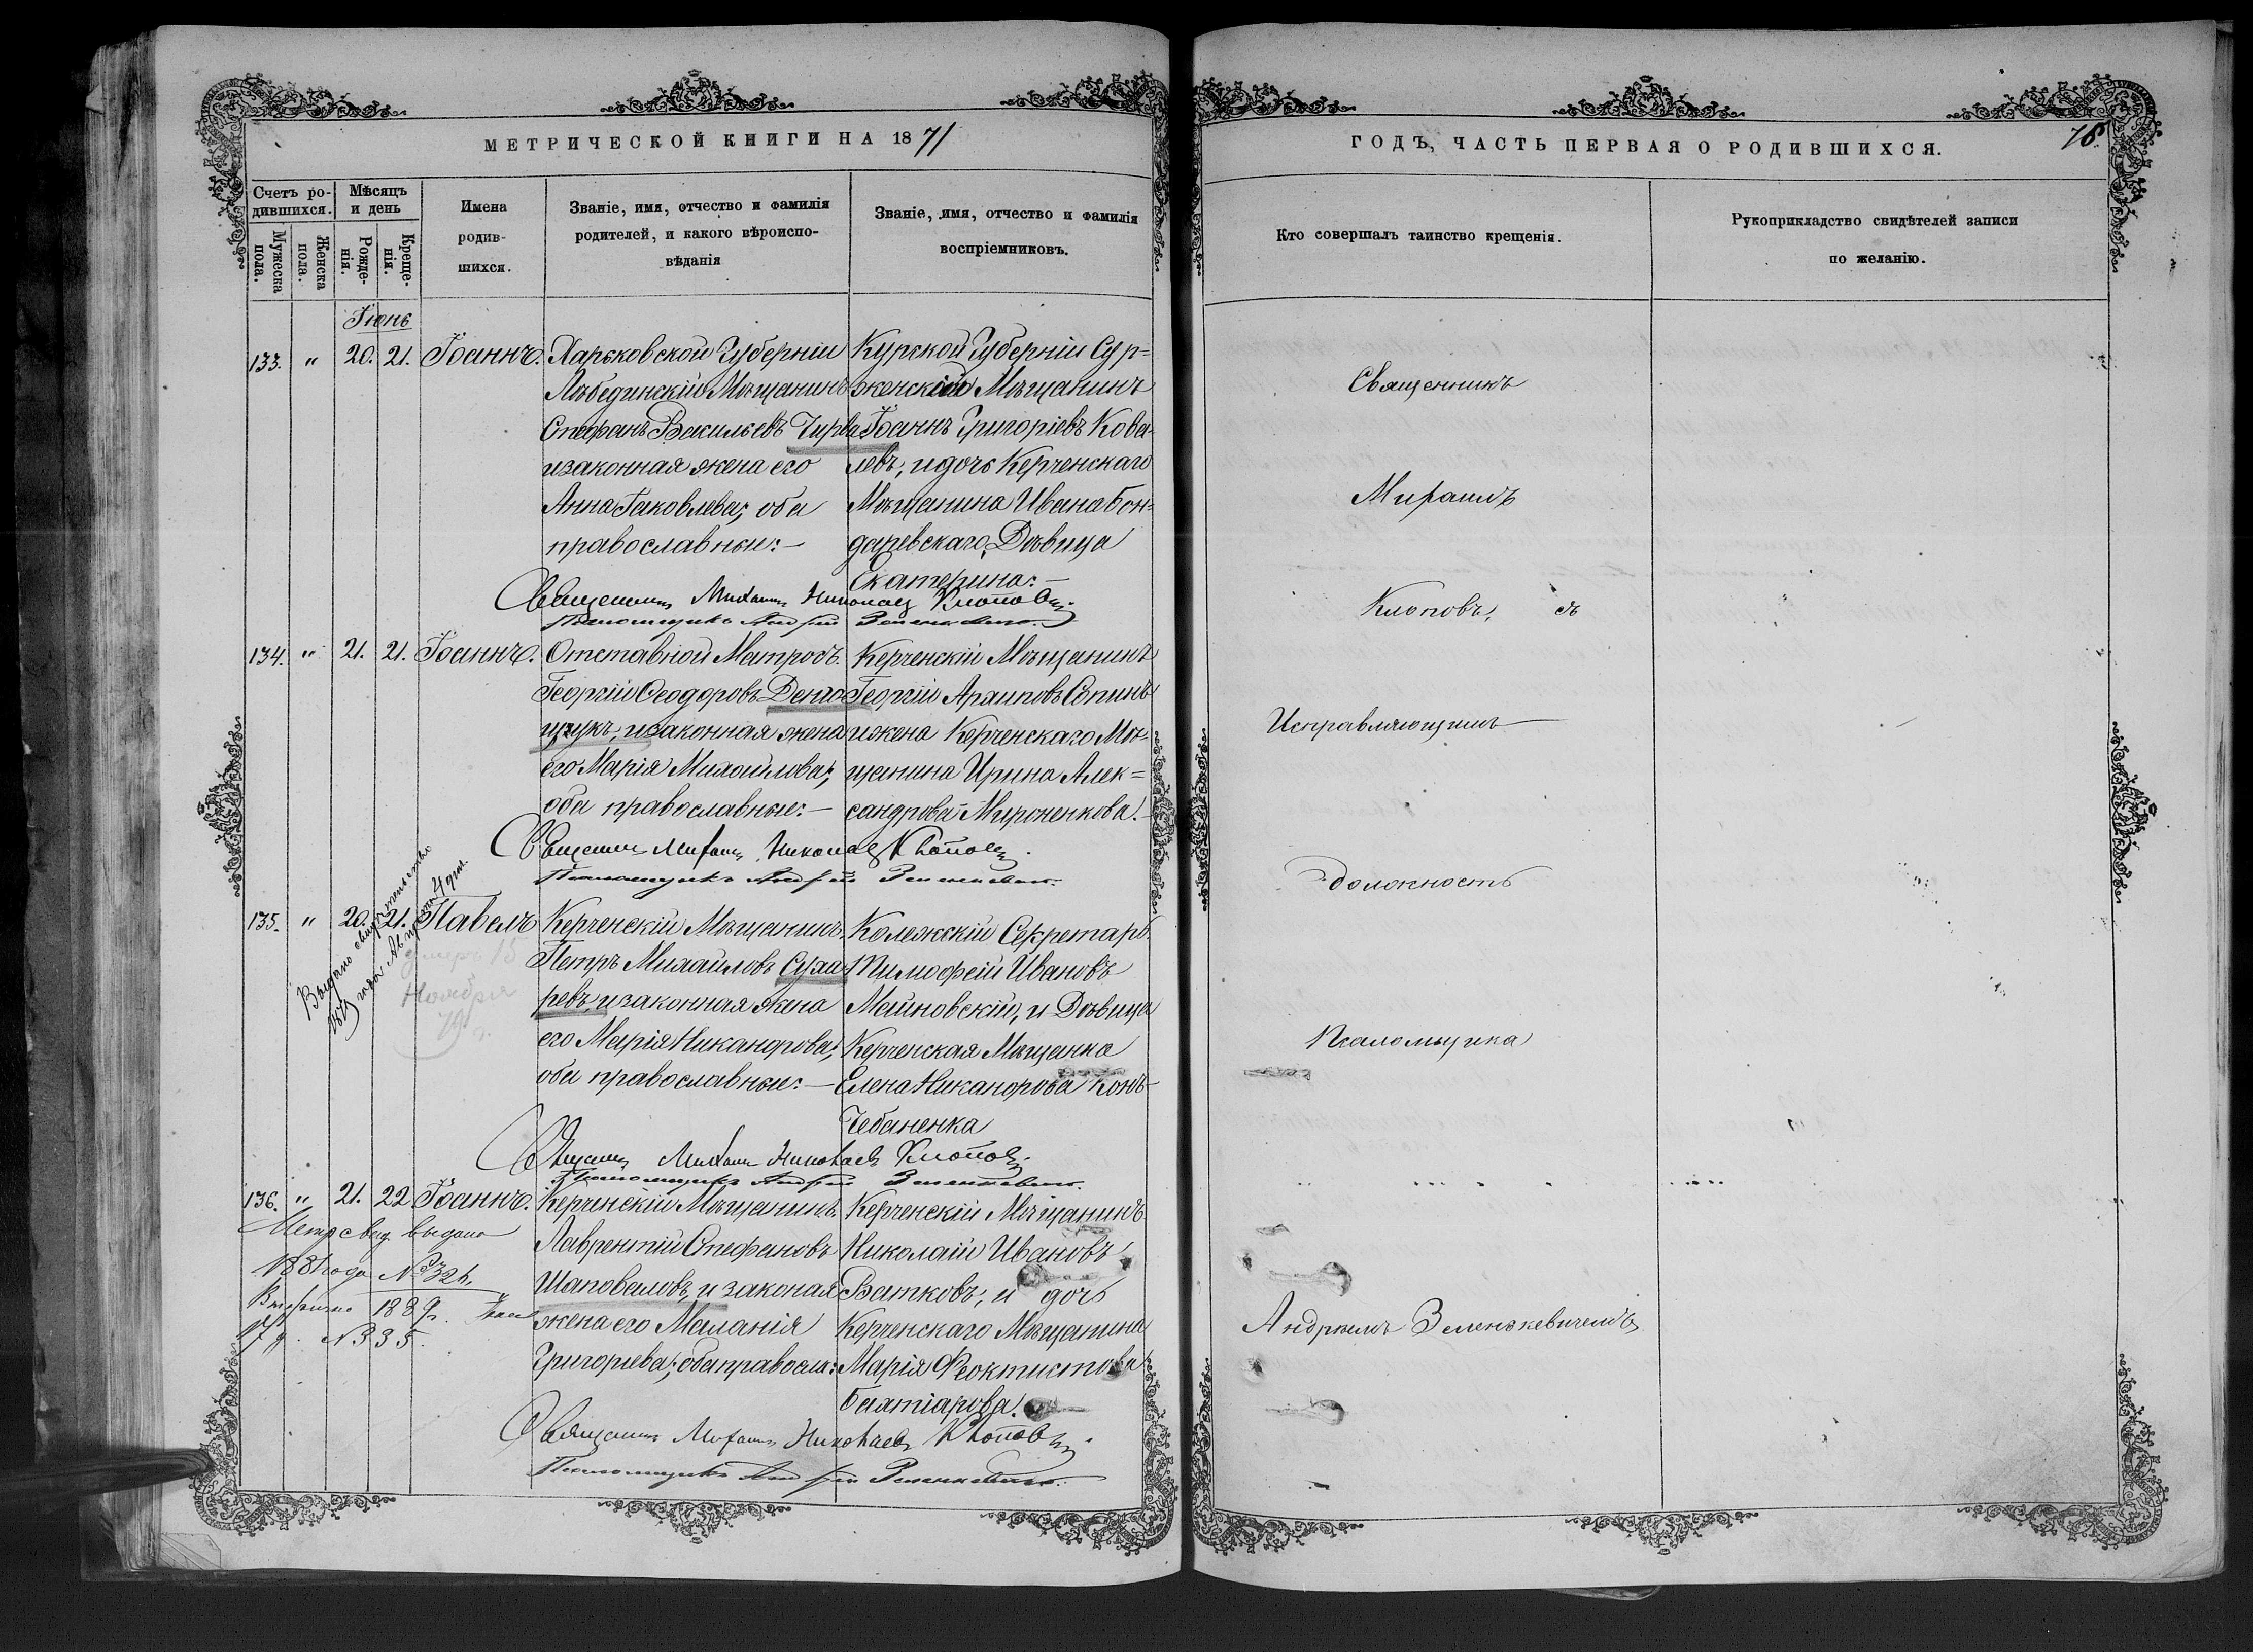 МЕТРИЧЕСКОЙ КНИГИ НА 1871
Счетъ родившихся.
Мѣсяцъ и день
Мужеска пола.
Женска пола.
Рожденія.
Крещенія.
Имена родившихся.
Званіе, имя, отчество и фамилія
родителей, и какого вѣроиспо-
вѣданія
Званіе, имя, отчество и фамилія
воспріемниковъ.
Іюнь
133. " 20. 21. Іоаннъ.
Харьковской Губерніи
Лебединскій Мѣщанинъ
Стефанъ Васильевъ
и законная жена его
Анна Іаковлева; оба
православные:—
Курской Губерніи Сур=
женскій Мѣщанинъ
Іоаннъ Григоріевъ Кова-
левъ; и дочь Керченскаго
Мѣщанина Ивана Бон-
даревскаго, Дѣвица
Екатерина:—
Священникъ Михаилъ Николаевъ Клоповъ.
Псаломщикъ Андрей Зеленкевичъ.
134. " 21. 21. Іоаннъ.
Отставной Матросъ
Георгій Ѳеодоровъ
и законная жена
его Марія Михайлова;
оба православные:—
Керченскій Мѣщанинъ
Георгій Архиповъ Сопинъ
и жена Керченскаго Мѣ-
щанина Ирина Алек=
сандрова Мироненкова.
Священникъ Михаилъ Николаевъ Клоповъ.
Псаломщикъ Андрей Зеленкевичъ.
135. " 20. 21. Павелъ
Выдано свидѣтельство
года Августа 4 дня.
умеръ 15
Ноября
Керченскій Мѣщанинъ
Петръ Михайловъ Суха-
ревъ, и законная жена
его Марія Никандрова;
оба православные:—
Колежскій Секретарь
Тимофей Ивановъ
Мойновскій, и Дѣвица
Керченская Мѣщанка
Елена Никанорова Конъ-
Чебаненка
Священникъ Михаилъ Николаевъ Клоповъ.
Псаломщикъ Андрей Зеленкевичъ.
136. " 21. 22 Іоаннъ.
Метр свид. выдано
1881 года № 326.
Вторично 1889
17 д. №335.
Керченскій Мѣщанинъ
Лаврентій Стефановъ
Шаповаловъ, и законая
жена его Маланія
Григорьева; оба правосла:
Керченскій Мѣщанинъ
Николай Ивановъ
Ватковъ; и дочь
Керченскаго Мѣщанина
Марія Феоктистова
Бахтіарова.
Священникъ Михаилъ Николаевъ Клоповъ.
Псаломщикъ Андрей Зеленкевичъ.
ГОДЪ, ЧАСТЬ ПЕРВАЯ О РОДИВШИХСЯ.
78.
Кто совершалъ таинство крещенія.
Рукоприкладство свидѣтелей записи
по желанію.
Священникъ
Михаилъ
Клоповъ, съ
Исправляющимъ
должность
Псаломщика
Андреемъ Зеленкевичемъ